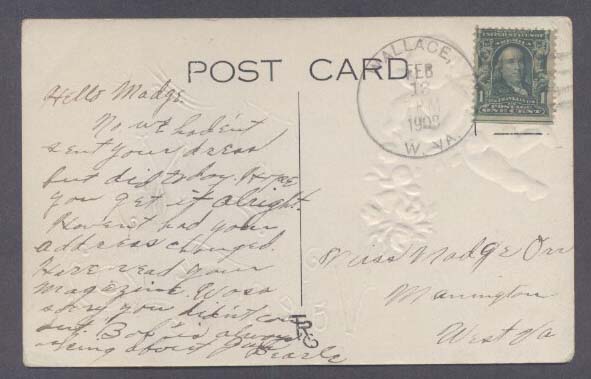 POST CARD
WALLACE,
FEB
1908
W. VA.
UNITED STATES OF AMERICA
POSTAGE
ONE CENT
Hello Madge.
No we hadent
sent your dress
but did today. Hope
you get it alright.
Havent had your
address changed.
Have read your
magazine. Was
sorry you didn't
out. "Bob" is always
about you
Pearle
Miss Madge Orr
Mannington
West Va